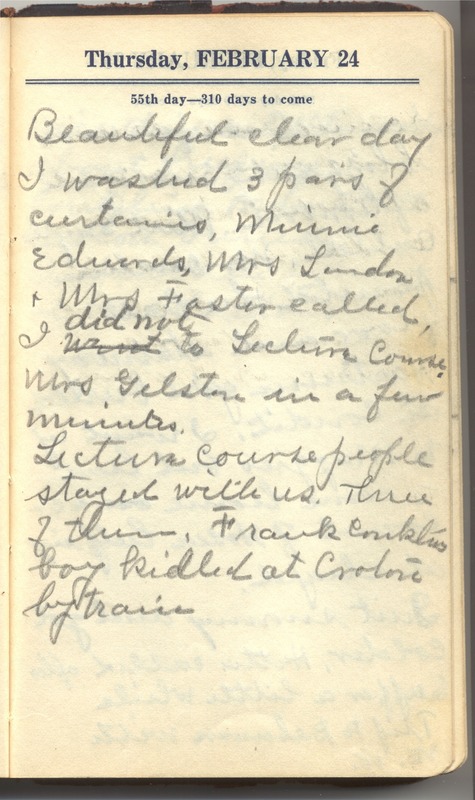 Thursday, FEBRUARY 24
55th day—310 days to come
Beautiful clear day
I washed 3 pairs of
curtains, Minnie
Edwards, Mrs Landon
+ Mrs Foster called,
did not
I went to Lecture Course.
Mrs Gelston in a few
minutes.
Lecture course people
stayed with us. Three
of them. Frank Conklins
boy kidled at Croton
by train